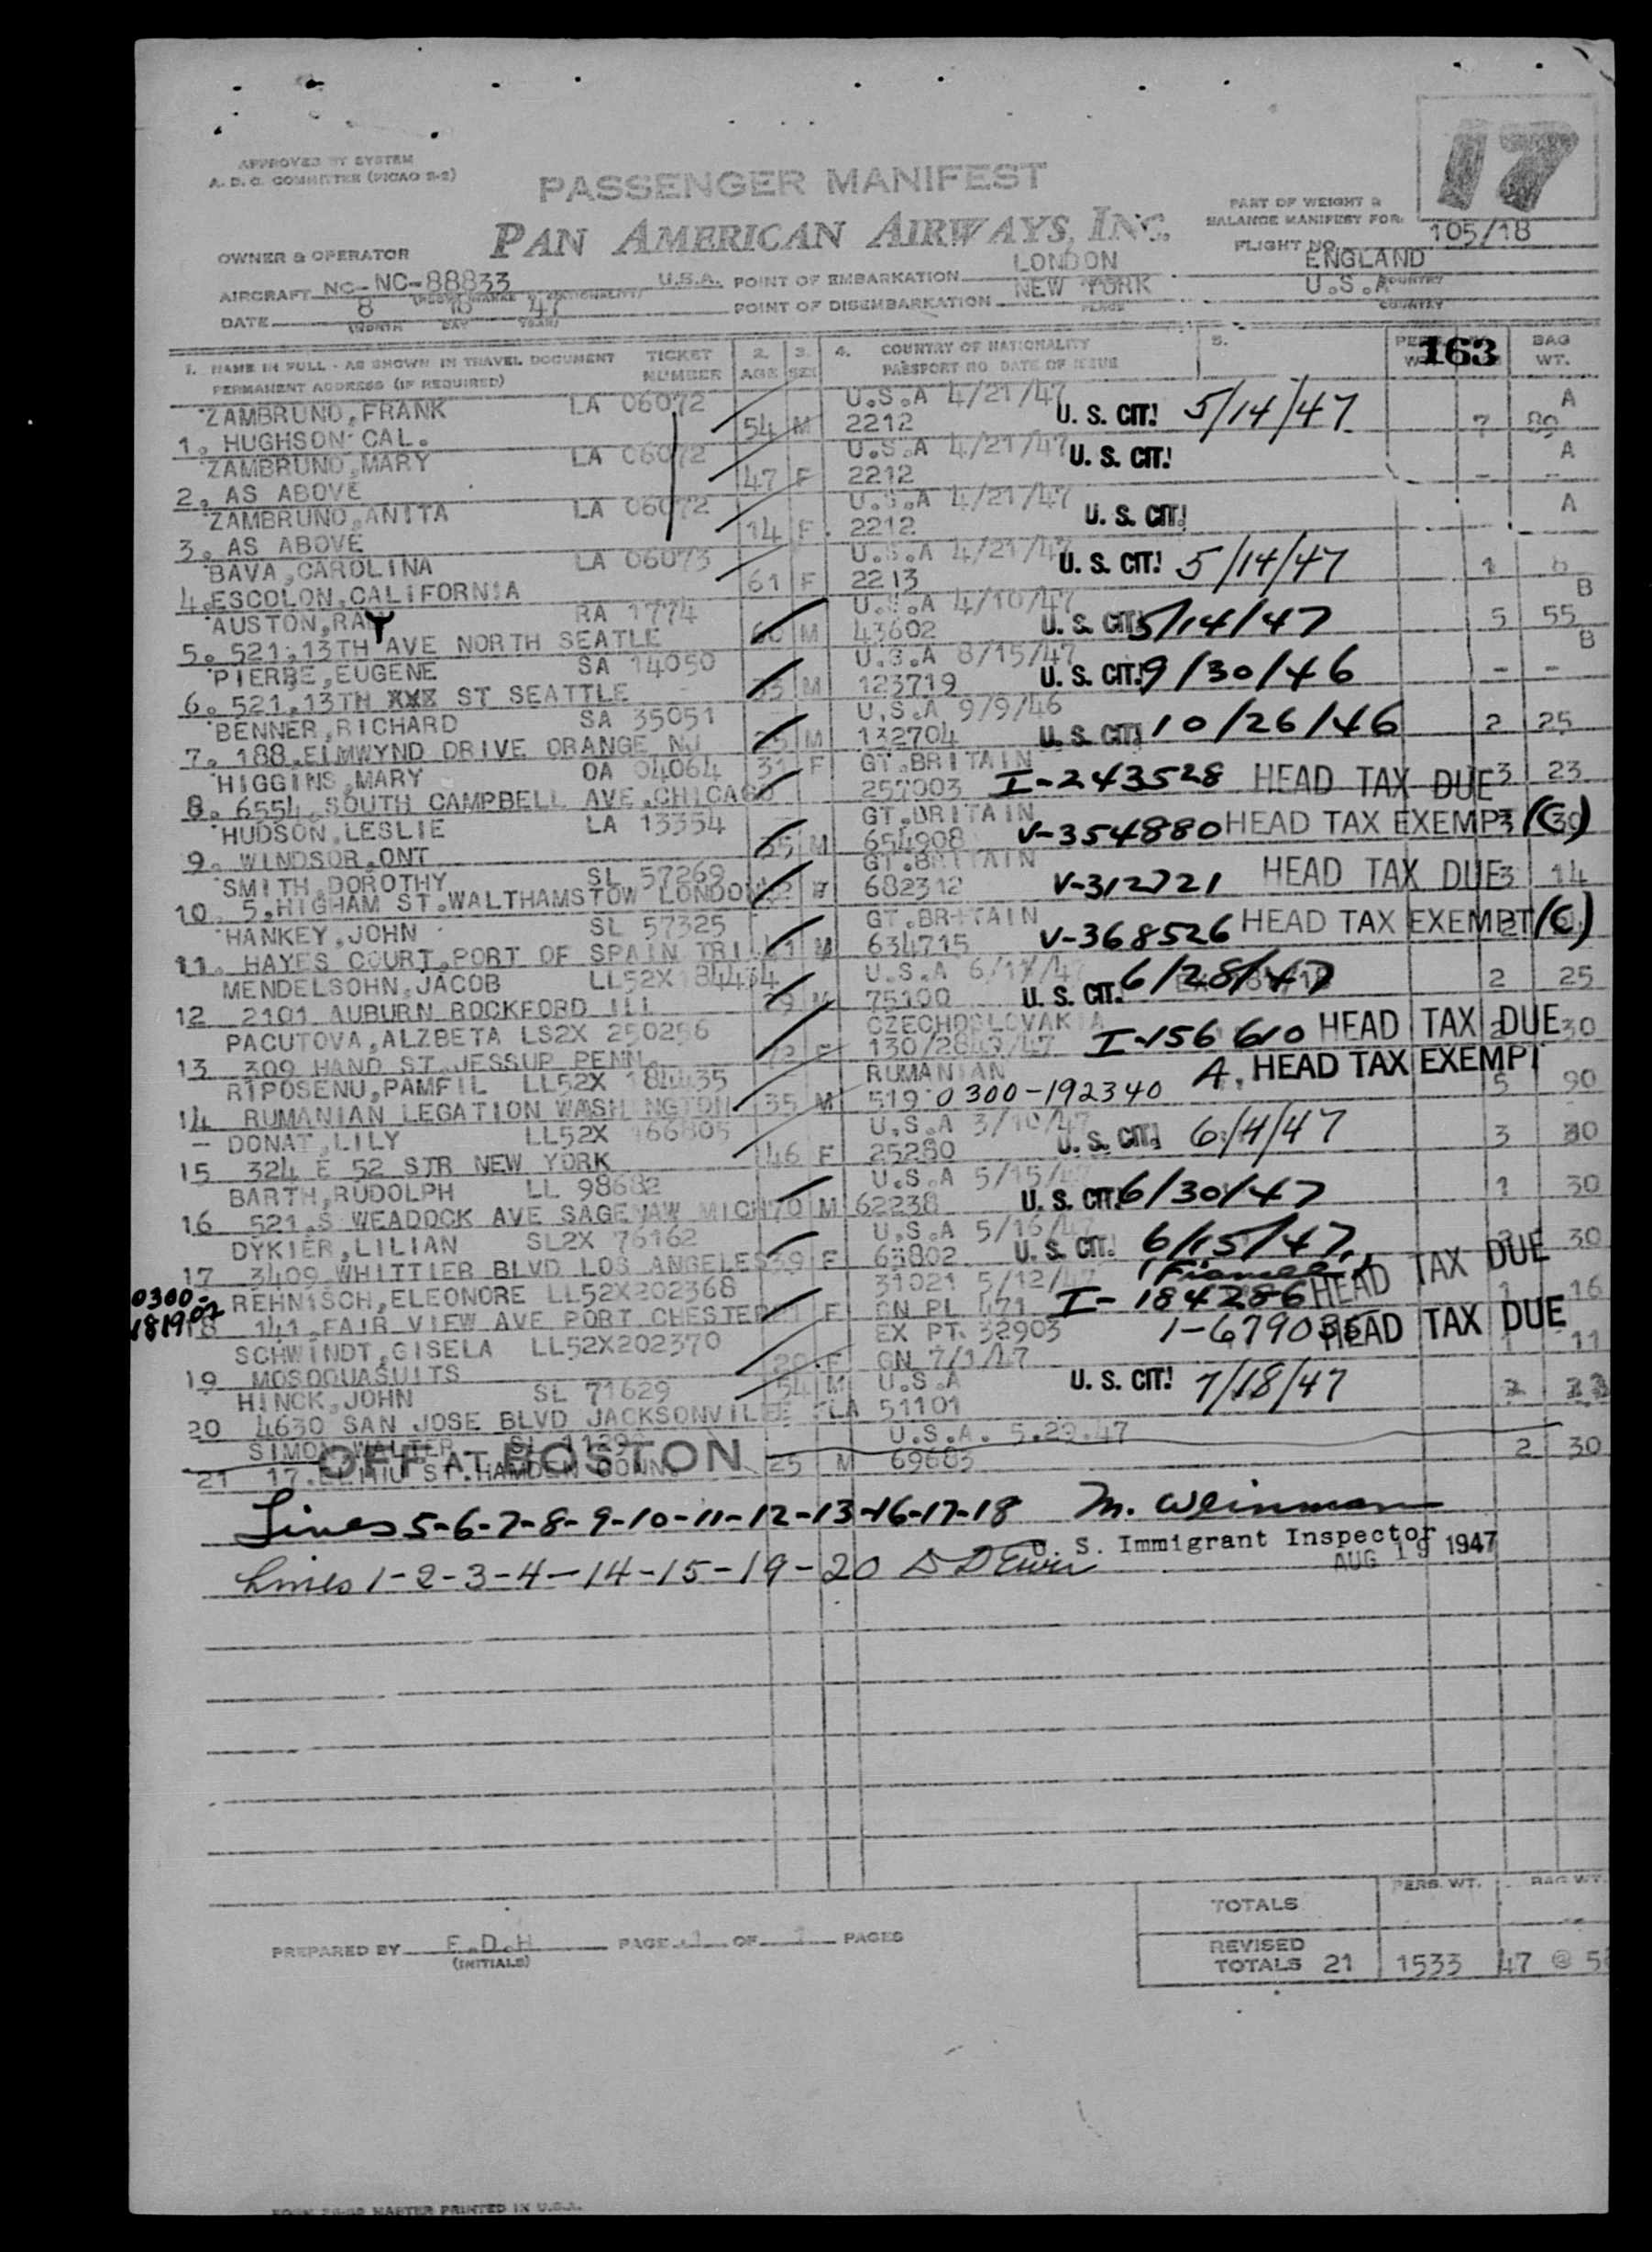 17
APPROVED BY SYSTEM
A. D. C. COMMITTEE (PICAO S-2)
PASSENGER MANIFEST
PAN AMERICAN AIRWAYS, INC.
PART OF WEIGHT &
BALANCE MANIFEST FOR:
FLIGHT NO. 105/18
OWNER & OPERATOR
AIRCRAFT NC- NC-88833 U.S.A. POINT OF EMBARKATION LONDON ENGLAND
DATE 8 18 47 POINT OF DISEMBARKATION NEW YORK U.S.A
(MONTH DAY YEAR) PLACE COUNTRY
1. NAME IN FULL - AS SHOWN IN TRAVEL DOCUMENT TICKET 2. 3. 4. COUNTRY OF NATIONALITY 5. 163 BAG
PERMANENT ADDRESS (IF REQUIRED) NUMBER AGE SEX PASSPORT NO. DATE OF ISSUE WT.
ZAMBRUNO,FRANK LA 06072 U.S.A 4/21/47 U. S. CIT! 5/14/47 A
1. HUGHSON CAL. 54 M 2212 7 89
ZAMBRUNO,MARY LA 06072 U.S.A 4/21/47 U. S. CIT! A
2. AS ABOVE 47 F 2212 - -
ZAMBRUNO,ANITA LA 06072 U.S.A 4/21/47 U. S. CIT! A
3. AS ABOVE 14 F 2212
BAVA,CAROLINA LA 06073 U.S.A 4/21/47 U. S. CIT! 5/14/47
4.ESCOLON,CALIFORNIA 61 F 2213 1
AUSTON,RAY RA 1774 U.S.A 4/10/47 U. S. CIT! 5/14/47 B
5. 521.13TH AVE NORTH SEATLE 60 M 43602 5 55
PIERRE,EUGENE SA 14050 U.S.A 8/15/47 U. S. CIT! 9/30/46 B
6. 521.13TH XXX ST SEATTLE 33 M 123719 - -
BENNER,RICHARD SA 35051 U.S.A 9/9/46 U. S. CIT! 10/26/46
7. 188.ELMWYND DRIVE ORANGE NJ 25 M 132704 2 25
HIGGINS,MARY OA 04064 31 F GT.BRITAIN
8. 6554 SOUTH CAMPBELL AVE.CHICAGO 257003 I-243528 HEAD TAX DUE 3 23
HUDSON,LESLIE LA 13354 GT.BRITAIN
9. WINDSOR.ONT 35 M 654908 V-354880 HEAD TAX EXEMPT (C) 30
SMITH,DOROTHY SL 57269 GT.BRITAIN
10. 5.HIGHAM ST.WALTHAMSTOW LONDON 682312 V-312721 HEAD TAX DUE 3 14
HANKEY,JOHN SL 57325 GT.BRITAIN
11. HAYES COURT.PORT OF SPAIN TRI 41 M 634715 V-368526 HEAD TAX EXEMPT (C)
MENDELSOHN,JACOB LL52X 184434 U.S.A U. S. CIT. 6/28/47
12 2101 AUBURN ROCKFORD ILL 29 M 75100 2 25
PACUTOVA,ALZBETA LS2X 250256 CZECHOSLOVAKIA
13 309 HAND ST.JESSUP PENN. I-156610 HEAD TAX DUE 30
RIPOSENU,PAMFIL LL52X 184435 RUMANIAN A. HEAD TAX EXEMPT
14 RUMANIAN LEGATION WASHINGTON 35 M 519 0300-192340 5 90
DONAT,LILY LL52X 166805 U.S.A 3/10/47 U. S. CIT! 6/4/47
15 324 E 52 STR NEW YORK 46 F 25280 3 30
BARTH,RUDOLPH LL 98682 U.S.A 5/15/47 U. S. CIT! 6/30/47
16 521.S WEADOCK AVE SAGENAW MICH 70 M 62238 1 30
DYKIER,LILIAN SL2X 76162 U.S.A 5/16/47 U. S. CIT! 6/15/47
17 3409 WHITTIER BLVD LOS ANGELES 39 F 63802 30
0300-18190
REHNISCH,ELEONORE LL52X202368 31021 5/12/47 I-184286 HEAD TAX DUE
18 141.FAIR VIEW AVE PORT CHESTER F GN PL 471 1 16
SCHWINDT,GISELA LL52X202370 EX PT. 32903 HEAD TAX DUE
19 MOSQQUASUITS 20 F GN 7/1/47 1 11
HINCK,JOHN SL 71629 54 M U.S.A U. S. CIT! 7/18/47
20 4630 SAN JOSE BLVD JACKSONVILLE FLA 51101
SIMON,WALTER U.S.A. 5.29.47
OFF AT BOSTON
21 25 M 69683 2 30
Lines 5-6-7-8-9-10-11-12-13-16-17-18 M. Weinman
U. S. Immigrant Inspector
AUG 19 1947
Lines 1-2-3-4-14-15-19-20
TOTALS PERS. WT. BAG WT.
REVISED
TOTALS 21 1533 47 @
PREPARED BY F.D.H PAGE 1 OF 1 PAGES
(INITIALS)